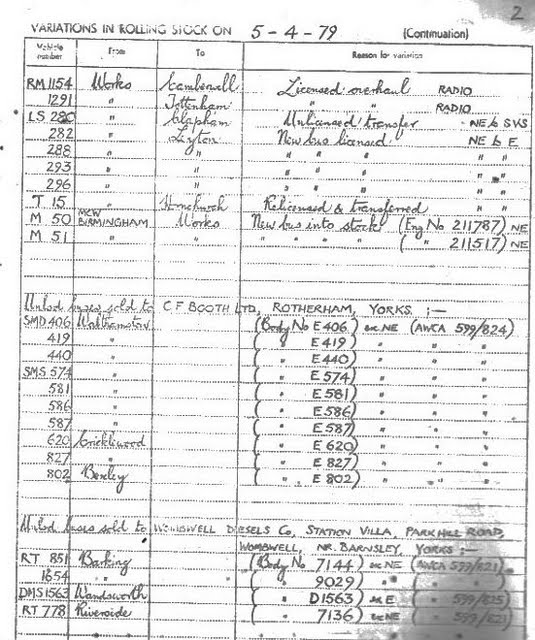 2
VARIATIONS IN ROLLING STOCK ON 5-4-79 (Continuation)
Vehicle number From To Reason for variation
RM 1154 Works Camberwell Licensed overhaul RADIO
1291 " Tottenham " " RADIO
LS 280 " Clapham Unlicensed transfer NE to SVS
282 " Leyton New bus licensed NE to E
288 " " " " " " "
293 " " " " " " "
296 " " " " " " "
T 15 " Hornchurch Relicensed & transferred " "
M 50 MCW BIRMINGHAM Works New bus into stock (Eng No 211787) NE
M 51 " " " " " " ( " 211517) NE
Unlsd buses sold to C F BOOTH LTD, ROTHERHAM, YORKS :—
SMD 406 Walthamstow (Body No E406) ex NE (AWCA 599/824)
419 " ( " E419) " " "
440 " ( " E440) " " "
SMS 574 " ( " E574) " " "
581 " ( " E581) " " "
586 " ( " E586) " " "
587 " ( " E587) " " "
620 Cricklewood ( " E620) " " "
827 " ( " E827) " " "
802 Bexley ( " E802) " " "
Unlsd buses sold to WOMBWELL DIESELS Co, STATION VILLA, PARKHILL ROAD,
WOMBWELL, NR. BARNSLEY, YORKS :—
RT 851 Barking (Body No 7144) ex NE (AWCA 599/821)
1654 " ( " 9029) "
DMS1563 Wandsworth ( " D1563) ex E
RT 778 Riverside ( " 7136) ex NE ( " 599/821)